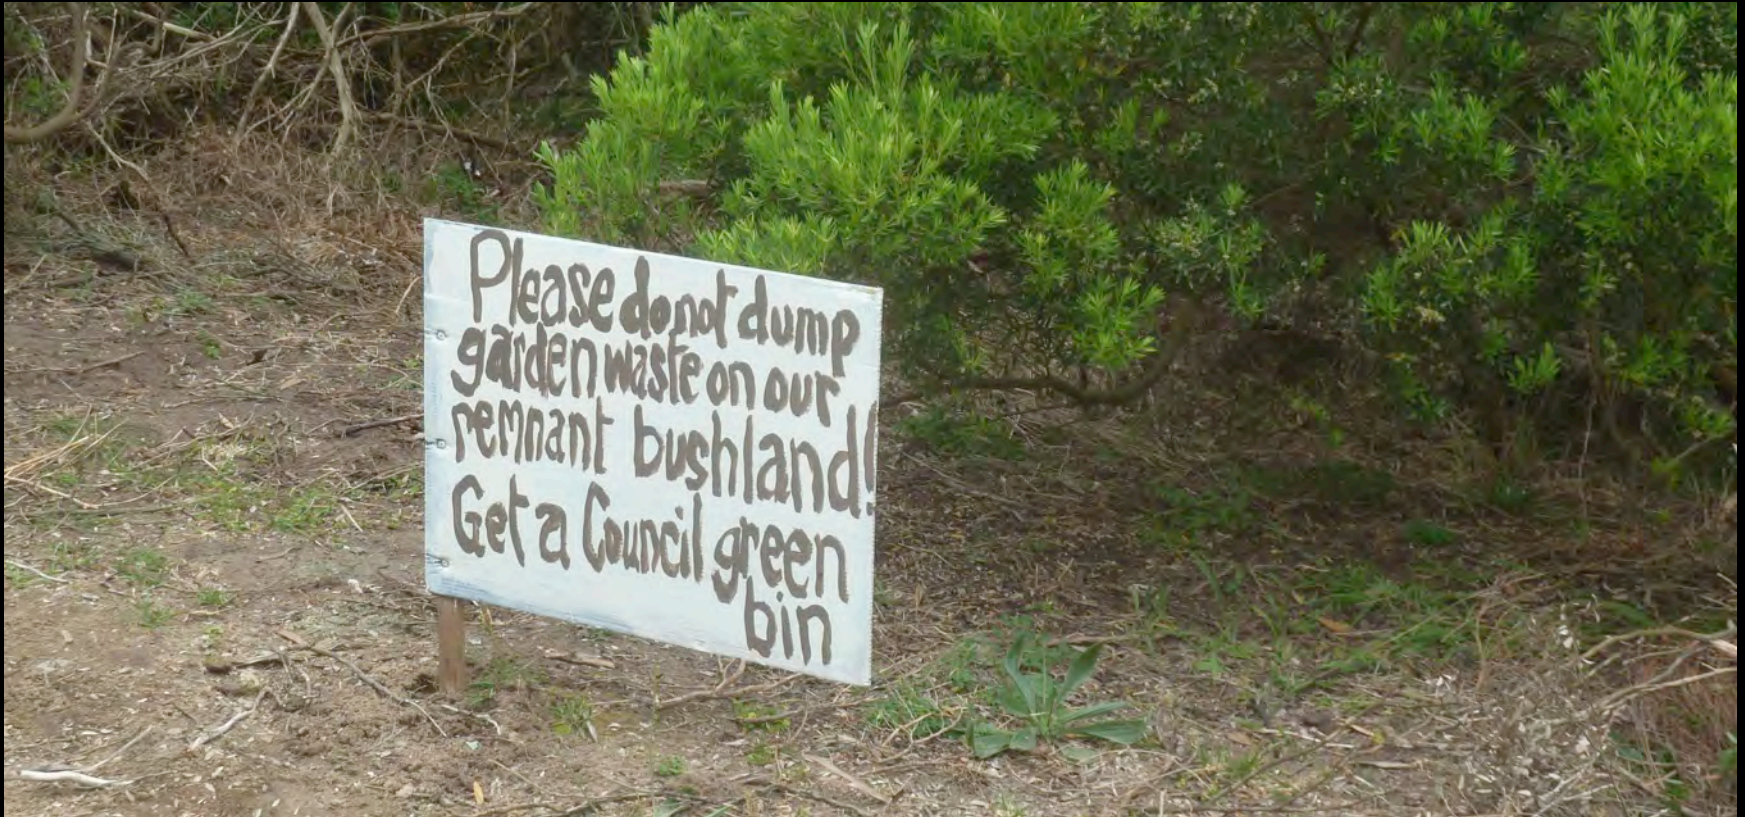 Please do not dump
garden waste on our
remnant bushland!
Get a Council green
bin